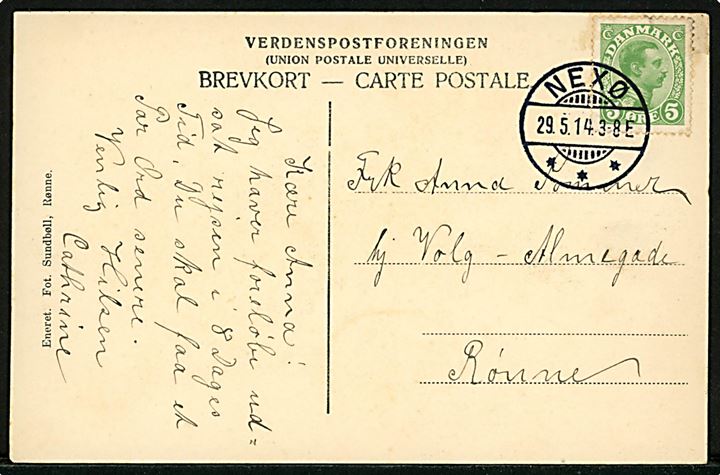 VERDENSPOSTFORENINGEN
(UNION POSTALE UNIVERSELLE)
BREVKORT — CARTE POSTALE
DANMARK
5 ØRE 5
NEXØ
29.5.14.3-8 E
Kære Anna!
Jeg haver foreløbi ud=
sat rejsen i 8 Dages
Tid, Du skal faa et
Par Ord senere.
Venlig Hilsen
Cathrine
Frk Anna
hj Volg - Almegade
Rønne
Eneret. Fot. Sundbøll, Rønne.